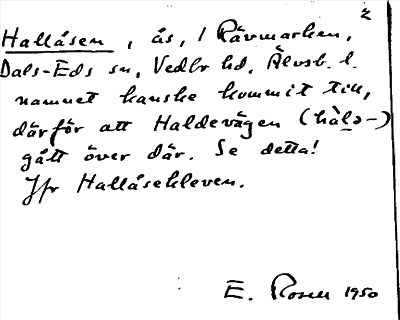 2
Hallåsen, ås, i Rävmarken,
Dals-Eds sn, Vedbo hd, Älvsb. l.
namnet kanske kommit till,
därför att Haldevägen (hàlə-)
gått över där. Se detta!
Jfr Hallåsekleven.
E. Rosell 1950